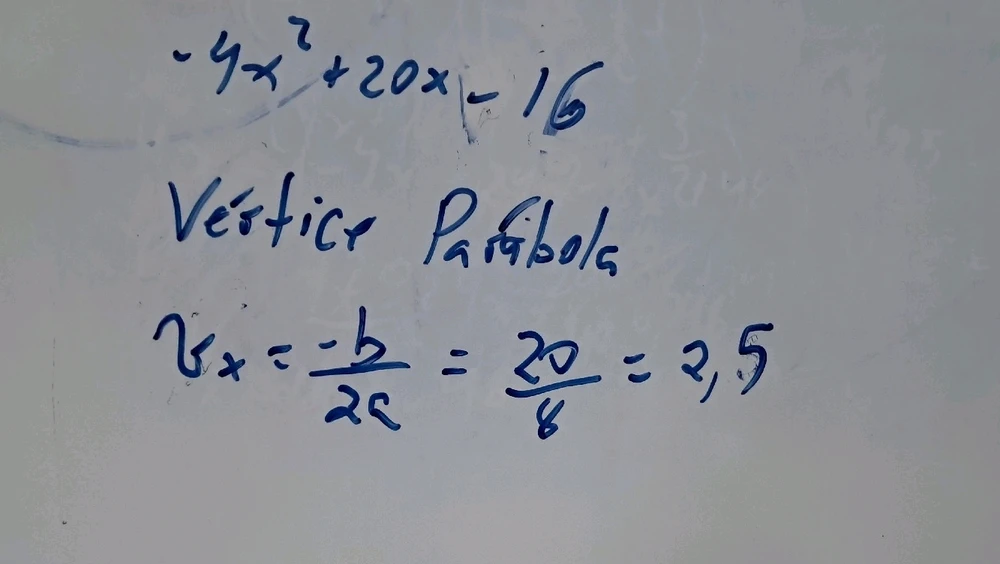 -4x² + 20x - 16
Vértice Parábola
Vx = -b/2a = 20/8 = 2,5